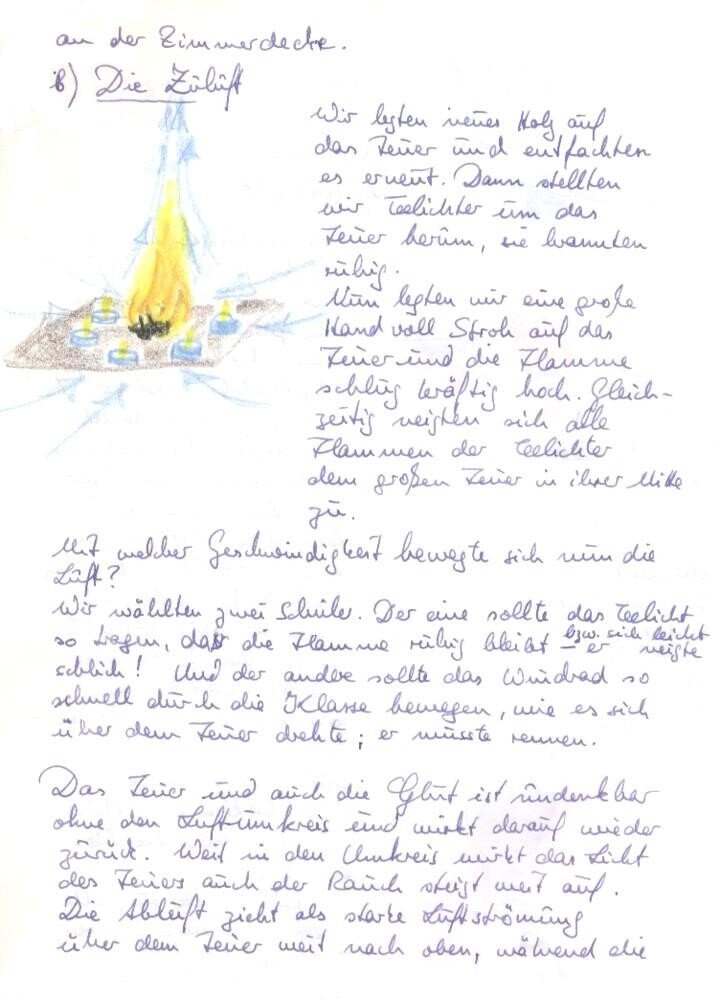 an der Zimmerdecke.
b) Die Zuluft
Wir legten neues Holz auf
das Feuer und entfachten
es erneut. Dann stellten
wir Teelichter um das
Feuer herum, sie brannten
ruhig.
Nun legten wir eine große
Hand voll Stroh auf das
Feuer und die Flamme
schlug kräftig hoch. Gleich-
zeitig neigten sich alle
Flammen der Teelichter
dem großen Feuer in ihrer Mitte
zu.
Mit welcher Geschwindigkeit bewegte sich nun die
Luft?
Wir wählten zwei Schüler. Der eine sollte das Teelicht
so tragen, daß die Flamme ruhig bleibt bzw. sich leicht neigte – er
schlich! Und der andere sollte das Windrad so
schnell durch die Klasse bewegen, wie es sich
über dem Feuer drehte; er musste rennen.
Das Feuer und auch die Glut ist undenkbar
ohne den Luftumkreis und wirkt darauf wieder
zurück. Weit in den Umkreis wirkt das Licht
des Feuers auch der Rauch steigt weit auf.
Die Abluft zieht als starke Luftströmung
über dem Feuer weit nach oben, während die